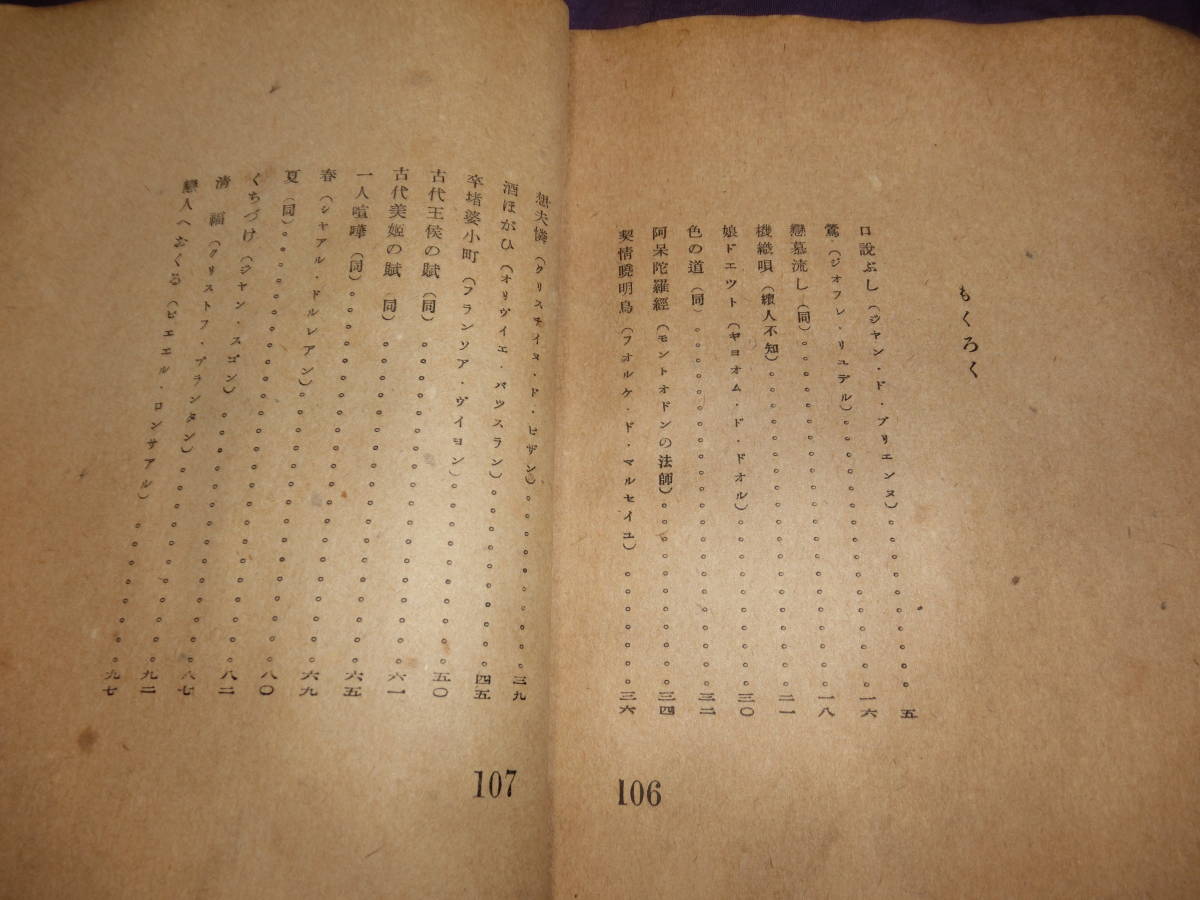 もくろく
口説ぶし(ジャン・ド・ブリエンヌ)。。。。。。。。。。五
鶯(ジオフレ・リュデル)。。。。。。。。。。。。。。一六
戀慕流し(同)。。。。。。。。。。。。。。。。。。。。一八
機織唄(讀人不知)。。。。。。。。。。。。。。。。。二一
娘ドエツト(ギヨオム・ド・ドオル)。。。。。。。。。三〇
色の道(同)。。。。。。。。。。。。。。。。。。。。三二
阿呆陀羅經(モントオドンの法師)。。。。。。。。。。三四
契情曉明烏(フオルケ・ド・マルセイユ)。。。。。。。三六
106
想夫憐(クリスチイヌ・ド・ピザン)。。。。。。。。。。三九
酒ほがひ(オリヴイエ・バツスラン)。。。。。。。。。。四五
卒堵婆小町(フランソア・ヴイヨン)。。。。。。。。。。五〇
古代王侯の賦(同)。。。。。。。。。。。。。。。。。六一
古代美姫の賦(同)。。。。。。。。。。。。。。。。。六五
一人喧嘩(同)。。。。。。。。。。。。。。。。。。。六九
春(シャアル・ドルレアン)。。。。。。。。。。。。。。八〇
夏(同)。。。。。。。。。。。。。。。。。。。。。。八二
くちづけ(ジャン・スゴン)。。。。。。。。。。。。。八七
清福(クリストフ・プランタン)。。。。。。。。。。。。九二
戀人へおくる(ピエエル・ロンサアル)。。。。。。。。九七
107